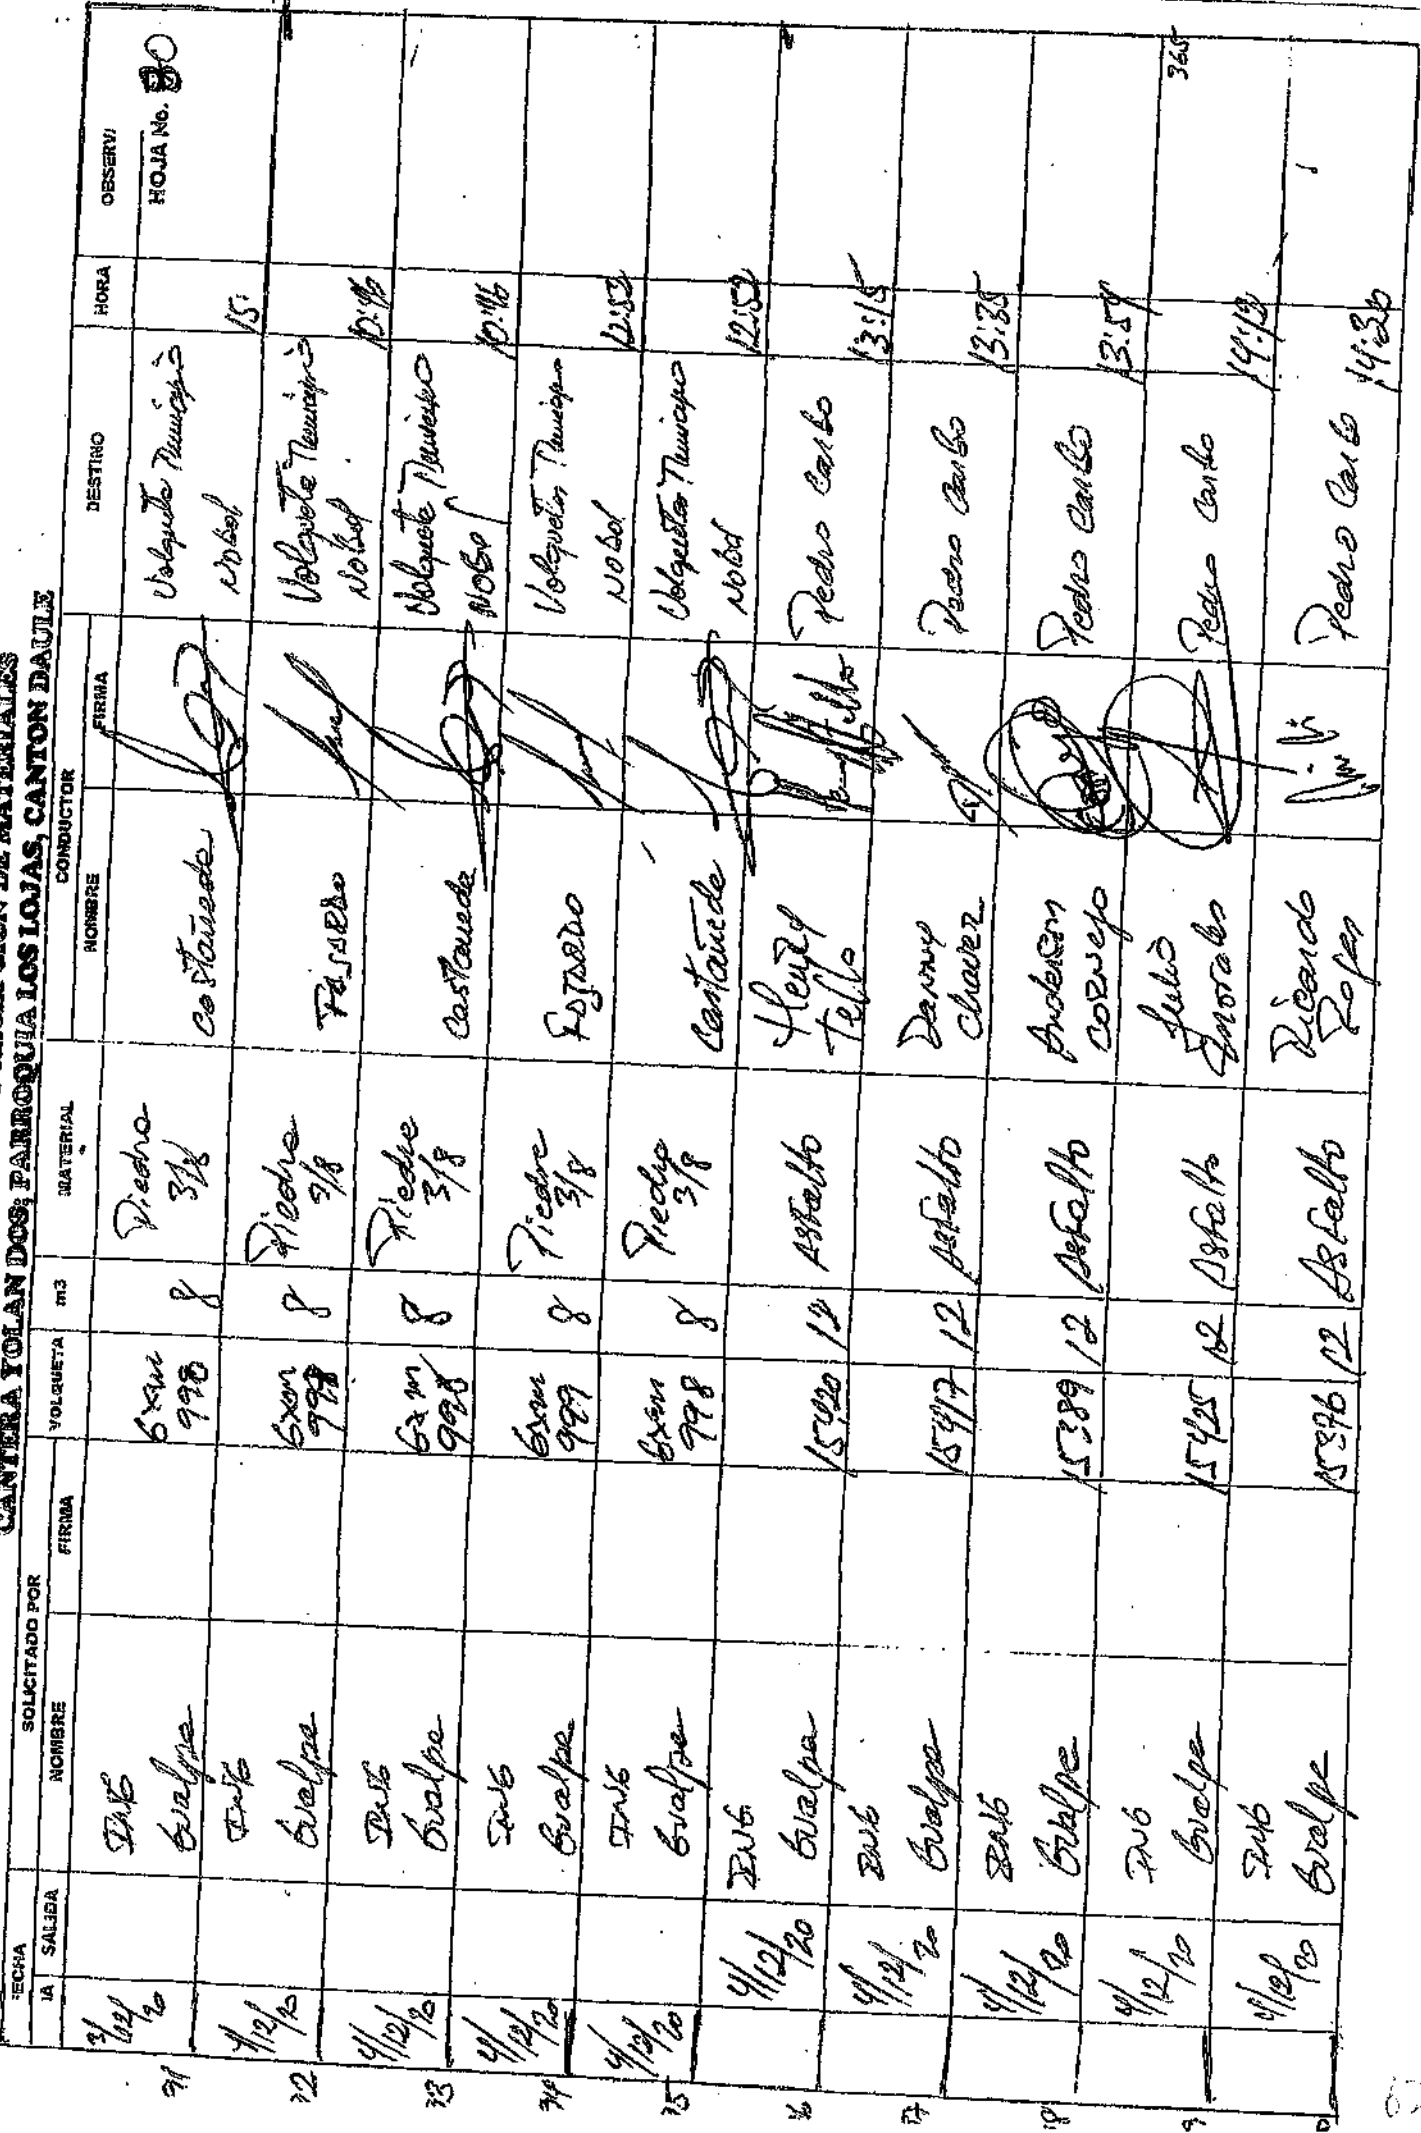 CANTERA YOLAN DOS; PARROQUIA LOS LOJAS, CANTON DAULE
FECHA SOLICITADO POR CONDUCTOR
SALIDA NOMBRE FIRMA VOLQUETA m3 MATERIAL NOMBRE FIRMA DESTINO HORA OBSERVI
HOJA No. 80
3/12/20 ING Gualpe 6xm 998 8 Piedra 3/8 Castañeda Volqueta Municipio Nobol 15:
4/12/20 ING Gualpe 6xm 8 Piedra 3/8 Volqueta Municipio Nobol 10:46
4/12/20 ING Gualpe 6xm 998 8 Piedra 3/8 Castañeda Volqueta Municipio Nobol 10:46
4/12/20 ING Gualpe 6xm 999 8 Piedra 3/8 Volqueta Municipio Nobol 12:52
4/12/20 ING Gualpe 6xm 998 8 Piedra 3/8 Castañeda Volqueta Municipio Nobol 12:52
4/12/20 ING Gualpe 15420 12 Asfalto Henry Tello Pedro Carbo 13:15
4/12/20 ING Gualpe 15417 12 Asfalto Danny Chavez Pedro Carbo 13:35
4/12/20 ING Gualpe 15389 12 Asfalto Anderson Cornejo Pedro Carbo 13:54
4/12/20 ING Gualpe 15425 12 Asfalto Julio Morales Pedro Carbo 14:12 365
4/12/20 ING Gualpe 15376 12 Asfalto Ricardo Pedro Carbo 14:30